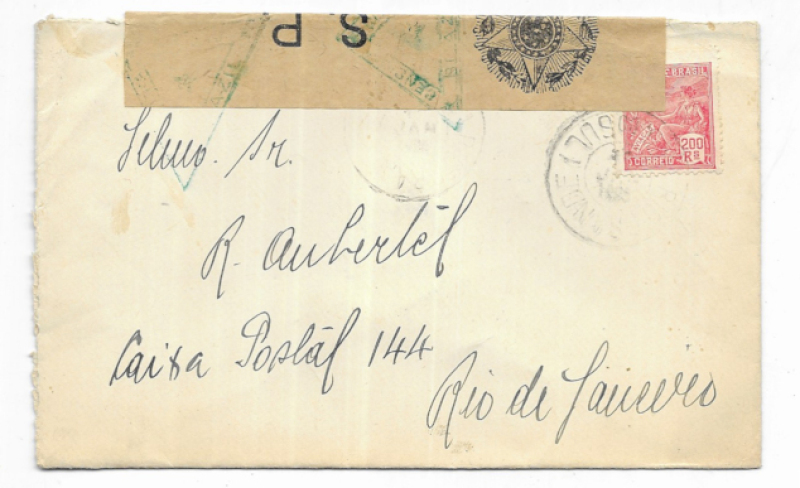 S P
BRASIL
200
Rs
CORREIO
Illmo. Sr.
R. Aubertél
Caixa Postál 144
Rio de Janeiro